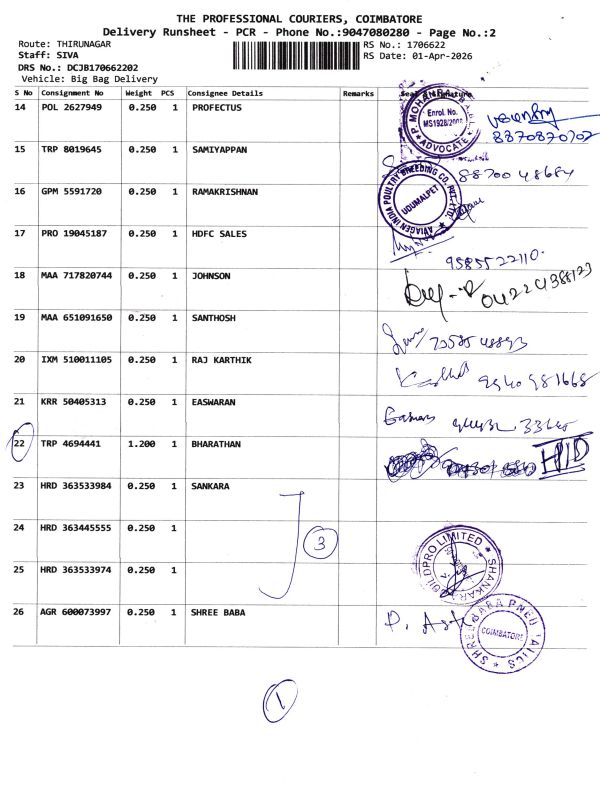 THE PROFESSIONAL COURIERS, COIMBATORE
Delivery Runsheet - PCR - Phone No.:9047080280 - Page No.:2
Route: THIRUNAGAR
Staff: SIVA
DRS No.: DCJB170662202
Vehicle: Big Bag Delivery
RS No.: 1706622
RS Date: 01-Apr-2026
S No Consignment No Weight PCS Consignee Details Remarks
14 POL 2627949 0.250 1 PROFECTUS
P. MOHAN
Enrol. No.
MS1928/2008
ADVOCATE
8870870702
15 TRP 8019645 0.250 1 SAMIYAPPAN
88700 48684
16 GPM 5591720 0.250 1 RAMAKRISHNAN
AVIAGEN INDIA POULTRY BREEDING CO. PVT. LTD.
UDUMALPET
17 PRO 19045187 0.250 1 HDFC SALES
9585522110.
18 MAA 717820744 0.250 1 JOHNSON
19 MAA 651091650 0.250 1 SANTHOSH
20 IXM 510011105 0.250 1 RAJ KARTHIK
9940981668
21 KRR 50405313 0.250 1 EASWARAN
22 TRP 4694441 1.200 1 BHARATHAN
H/D
23 HRD 363533984 0.250 1 SANKARA
24 HRD 363445555 0.250 1
3
25 HRD 363533974 0.250 1
BUILDPRO LIMITED
SHANKAR
26 AGR 600073997 0.250 1 SHREE BABA
SHREE BABA PNEUMATICS
COIMBATORE
1